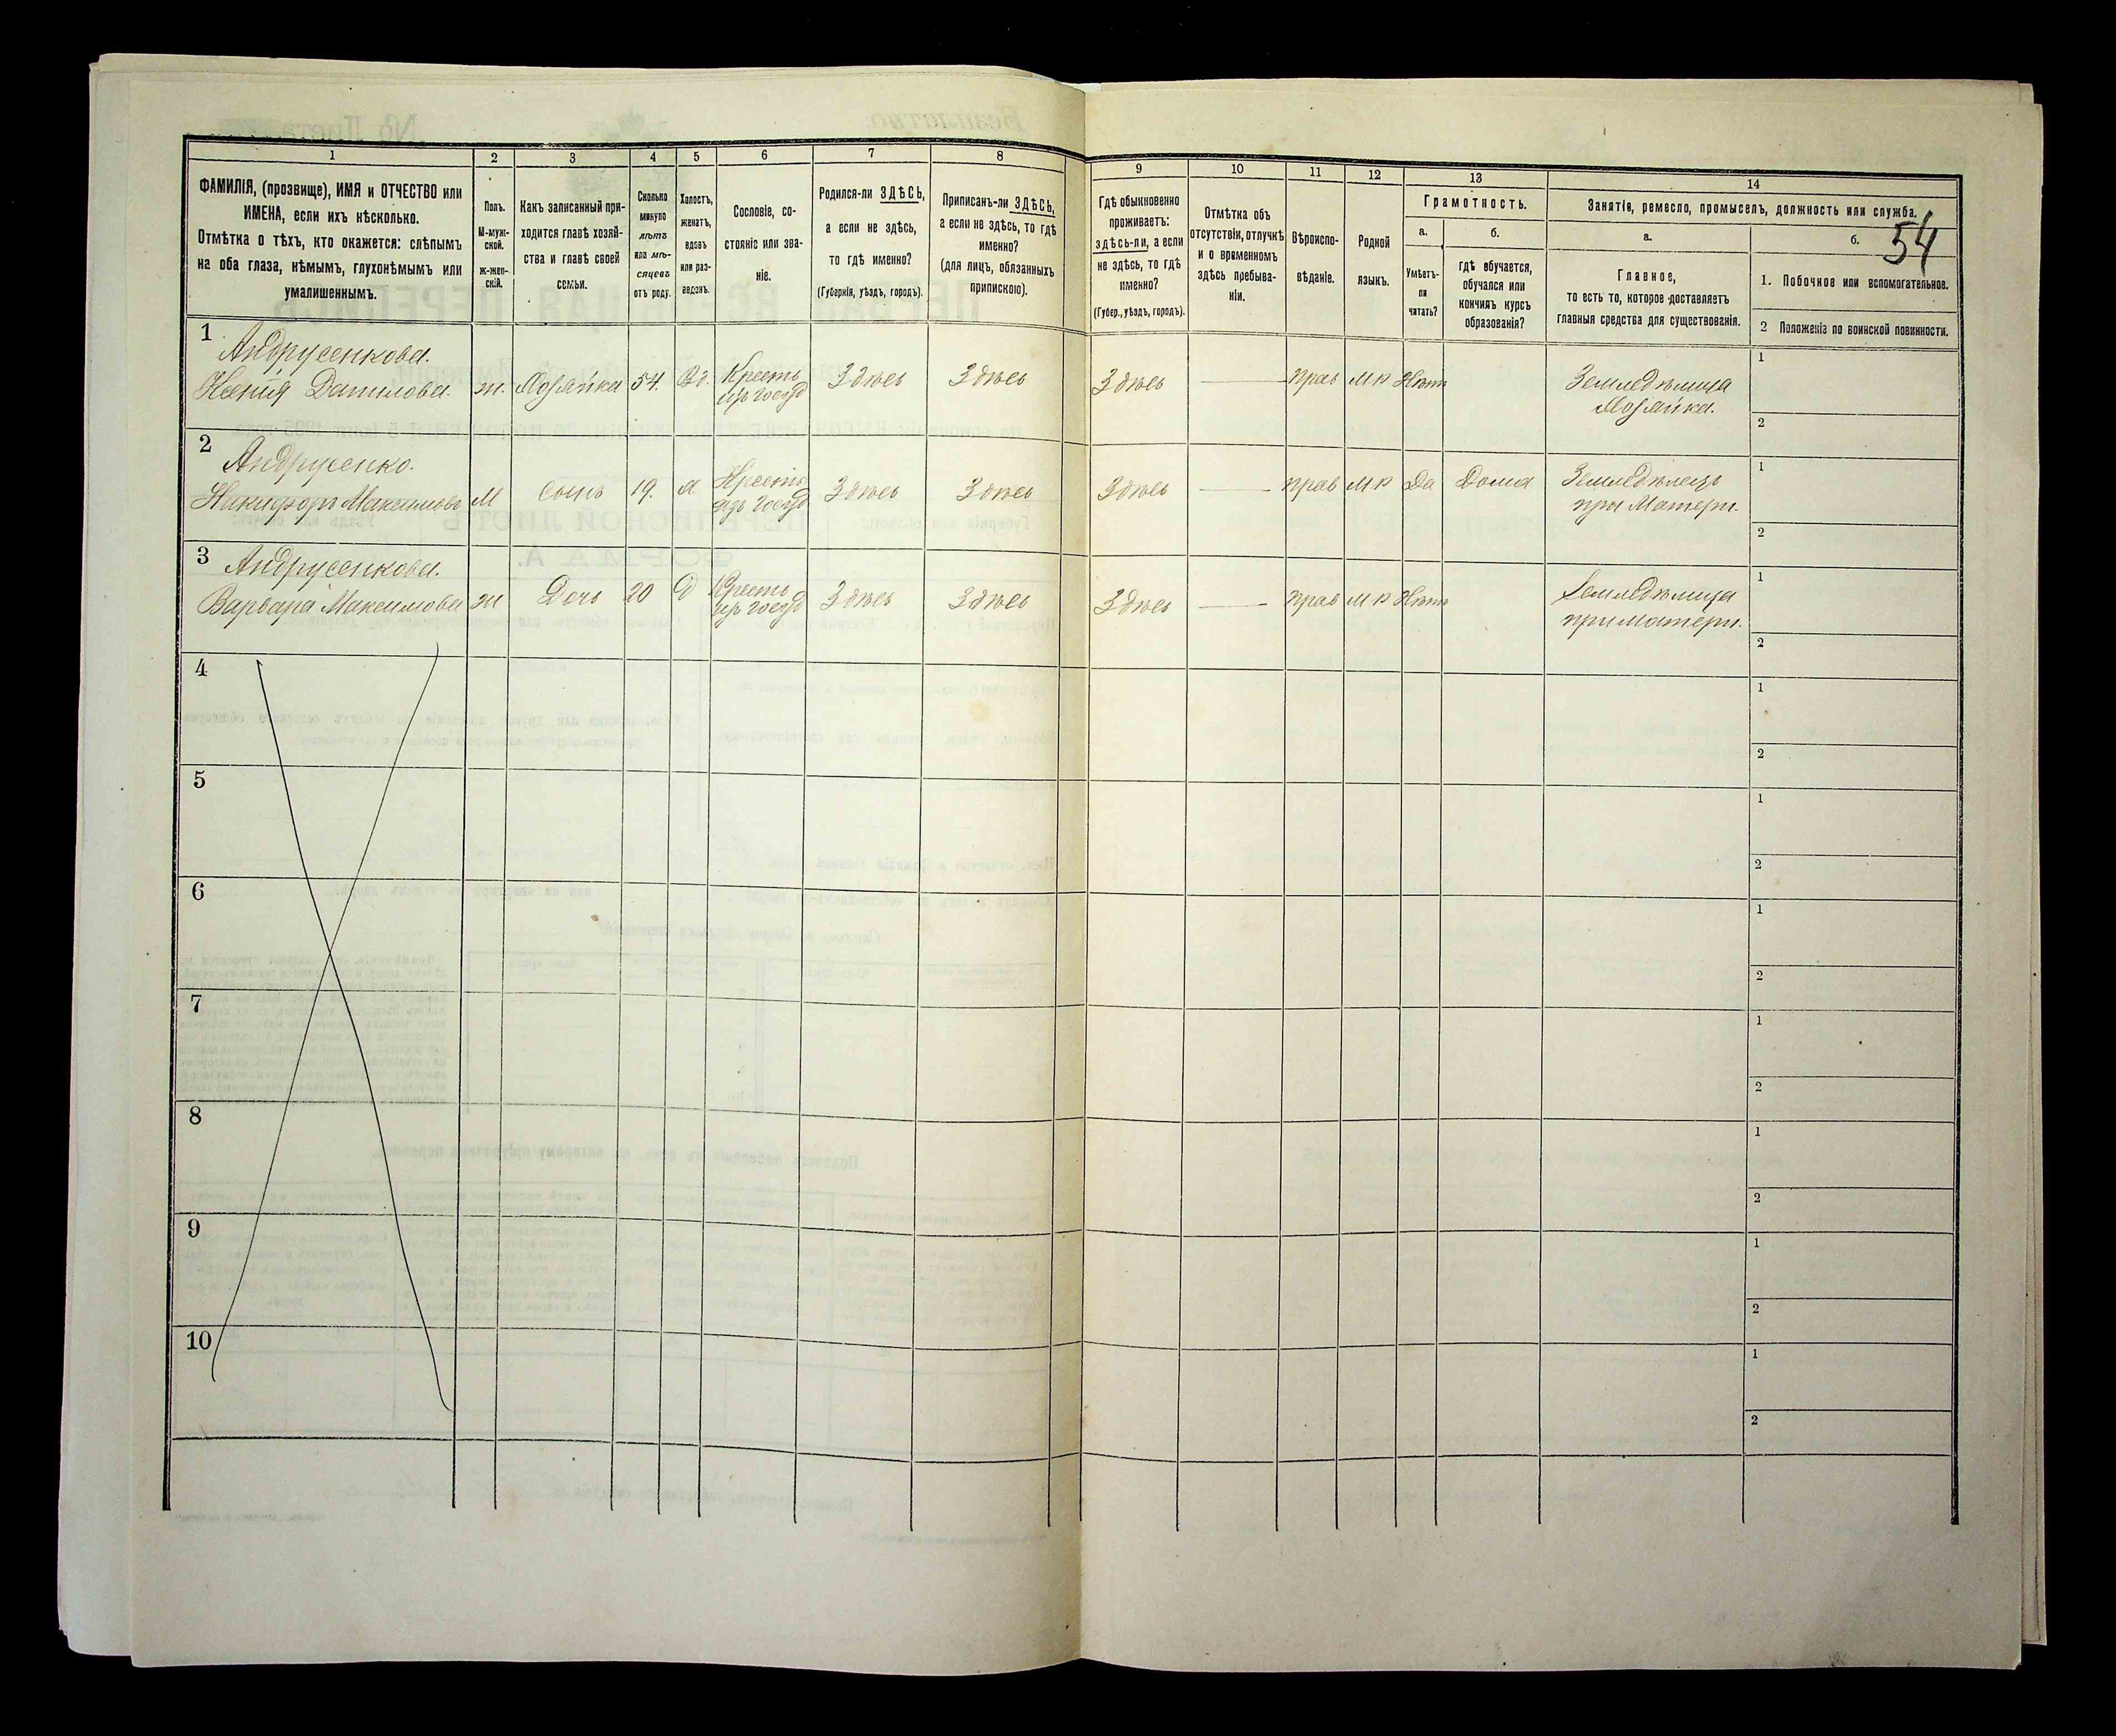 1
2
3
4
5
6
7
8
9
10
11
12
13
14
ФАМИЛІЯ, (прозвище), ИМЯ и ОТЧЕСТВО или
ИМЕНА, если ихъ нѣсколько.
Отмѣтка о тѣхъ, кто окажется: слѣпымъ
на оба глаза, нѣмымъ, глухонѣмымъ или
умалишеннымъ.
Полъ.
М-муж-
ской.
ж-жен-
скій.
Какъ записанный при-
ходится главѣ хозяй-
ства и главѣ своей
семьи.
Сколько
минуло
лѣтъ
или мѣ-
сяцевъ
отъ роду.
Холостъ,
женатъ,
вдовъ
или раз-
веденъ.
Сословіе, со-
стояніе или зва-
ніе.
Родился-ли ЗДѢСЬ,
а если не здѣсь,
то гдѣ именно?
(Губернія, уѣздъ, городъ).
Приписанъ-ли ЗДѢСЬ,
а если не здѣсь, то гдѣ
именно?
(для лицъ, обязанныхъ
припискою).
Гдѣ обыкновенно
проживаетъ:
здѣсь-ли, а если
не здѣсь, то гдѣ
именно?
(Губер., уѣздъ, городъ).
Отмѣтка объ
отсутствіи, отлучкѣ
и о временномъ
здѣсь пребыва-
ніи.
Вѣроиспо-
вѣданіе.
Родной
языкъ.
Грамотность.
а.
б.
Умѣетъ-
ли
читать?
гдѣ обучается,
обучался или
кончилъ курсъ
образованія?
Занятіе, ремесло, промыселъ, должность или служба.
54
а.
б.
Главное,
то есть то, которое доставляетъ
главныя средства для существованія.
1. Побочное или вспомогательное.
2 Положеніе по воинской повинности.
1
Андрусенкова.
Ксенія Данилова. ж. Хозяйка 54. Вд. Крестъ
изъ госуд
Здѣсь Здѣсь Здѣсь — прав МР Нѣтъ
Земледѣлица
Хозяйка.
1
2
2
Андрусенко.
Никифоръ Максимовъ М Сынъ 19. Х Крестъ
изъ госуд
Здѣсь Здѣсь Здѣсь — прав МР Да Дома
Земледѣлецъ
при Матери.
1
2
3
Андрусенкова.
Варвара Максимова ж Дочь 20 Д Крестъ
изъ госуд
Здѣсь Здѣсь Здѣсь — прав МР Нѣтъ
Земледѣлица
при Матери.
1
2
4
1
2
5
1
2
6
1
2
7
1
2
8
1
2
9
1
2
10
1
2